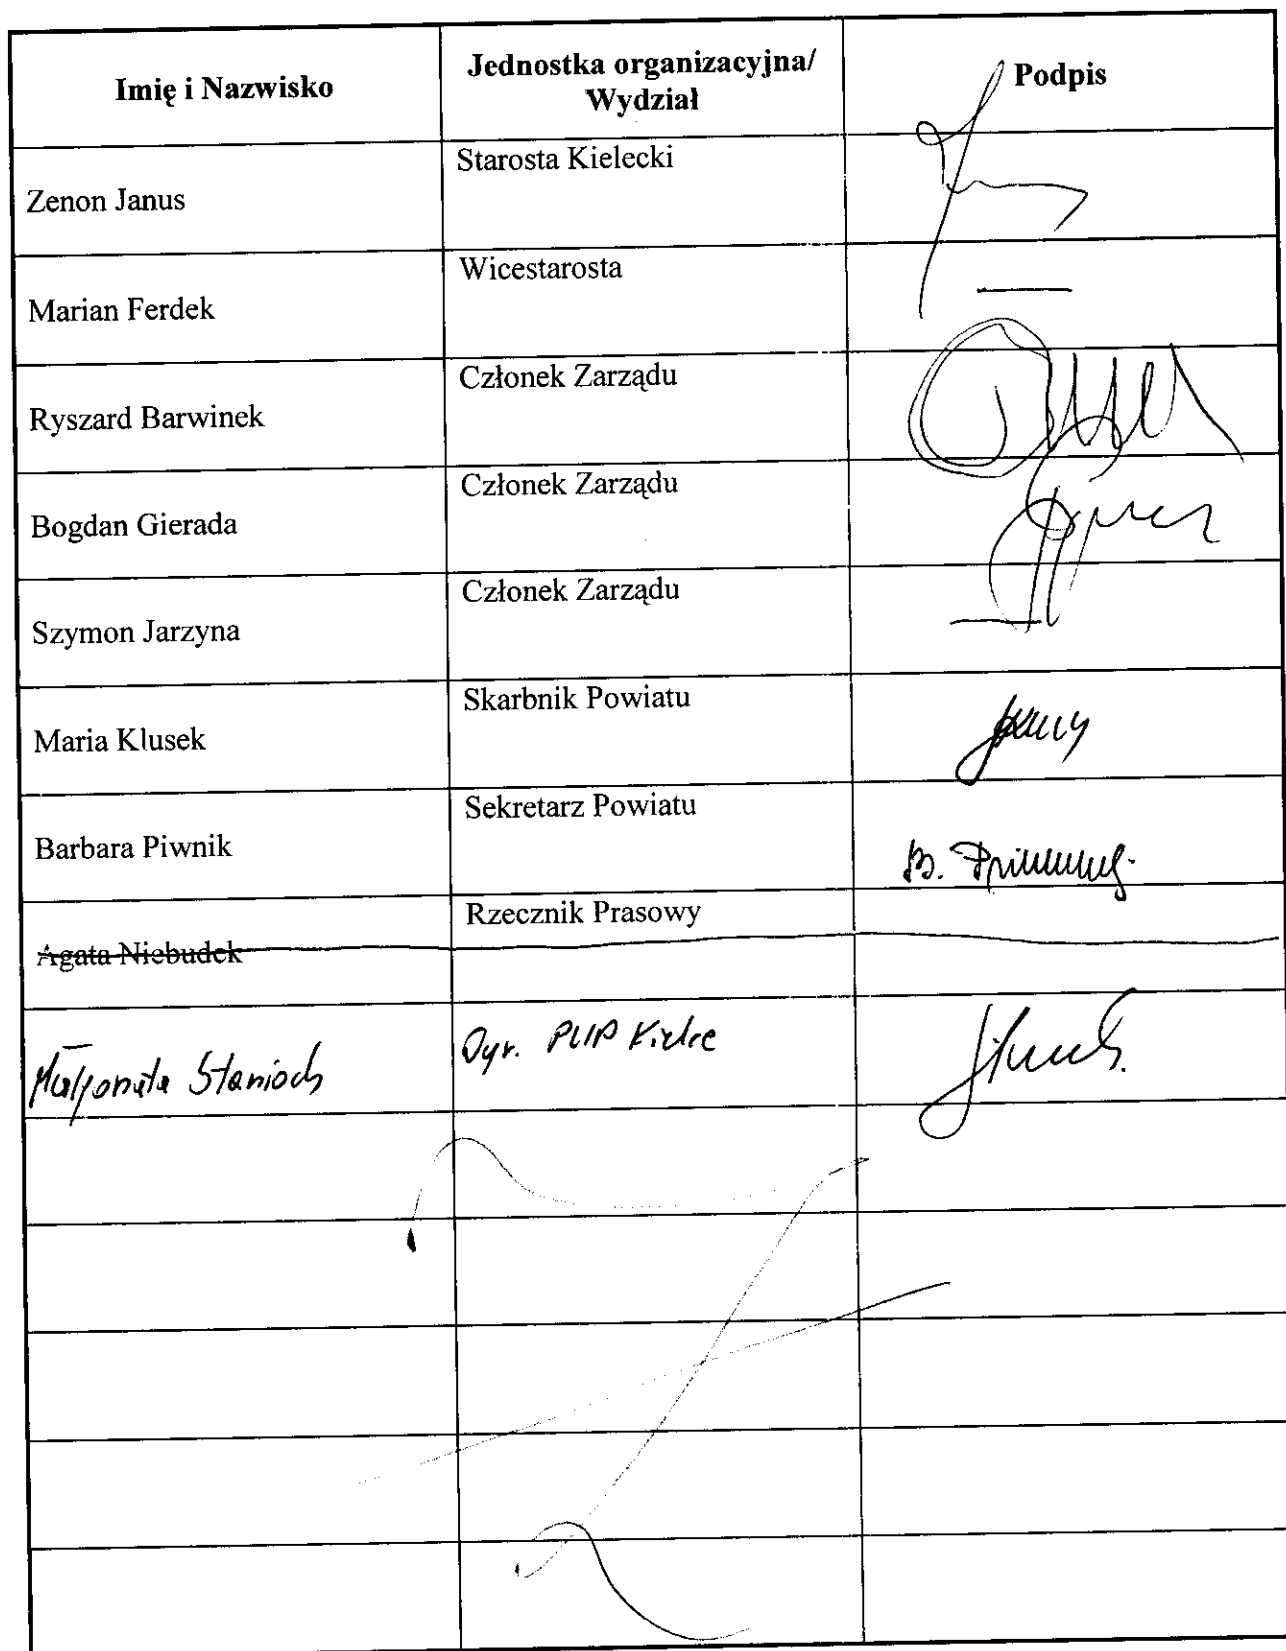 Imię i Nazwisko
Jednostka organizacyjna/
Wydział
Podpis
Zenon Janus
Starosta Kielecki
Marian Ferdek
Wicestarosta
—
Ryszard Barwinek
Członek Zarządu
Bogdan Gierada
Członek Zarządu
Szymon Jarzyna
Członek Zarządu
—
Maria Klusek
Skarbnik Powiatu
Barbara Piwnik
Sekretarz Powiatu
B.
Agata Niebudek
Rzecznik Prasowy
Małgorzata Stanioch
Dyr. PUP Kielce